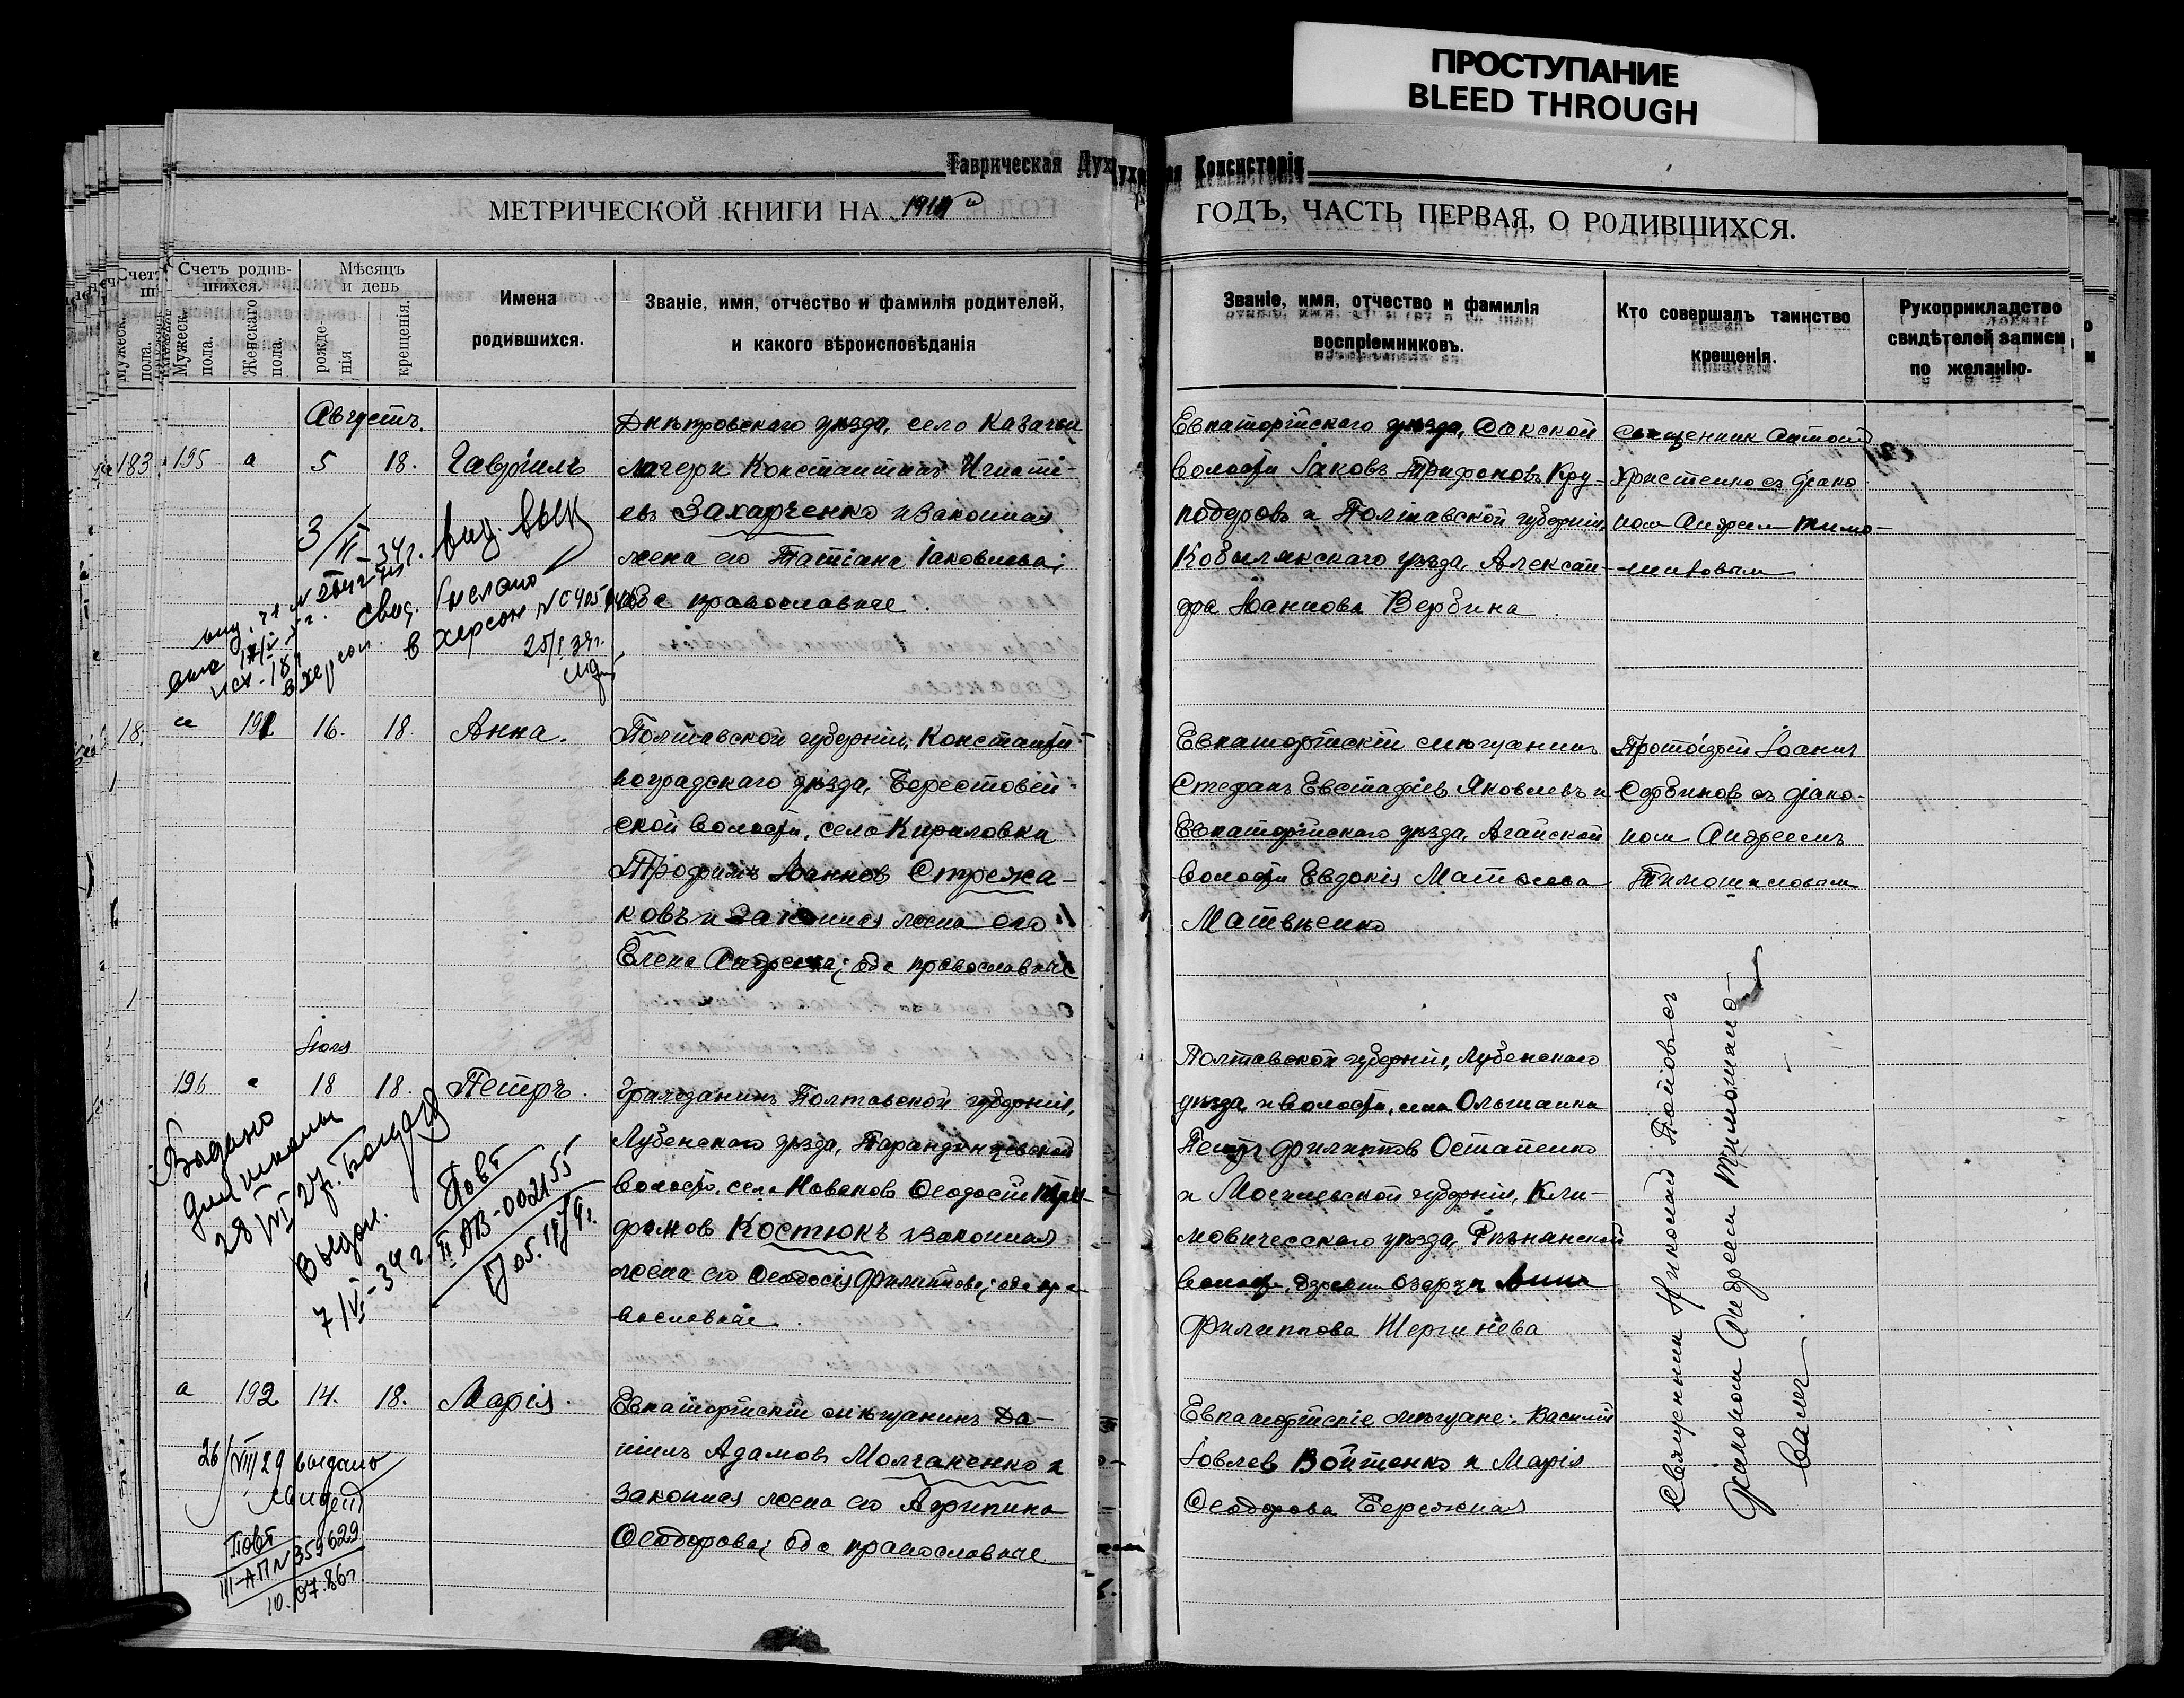 ПРОСТУПАНИЕ
BLEED THROUGH
Таврическая Духовная Консисторія
МЕТРИЧЕСКОЙ КНИГИ НА
ГОДЪ, ЧАСТЬ ПЕРВАЯ, О РОДИВШИХСЯ.
Счетъ родив-
шихся.
Мужеск.
пола.
Женскаго
пола.
Мѣсяцъ
и день
рожде-
нія
крещенія.
Имена
родившихся.
Званіе, имя, отчество и фамилія родителей,
и какого вѣроисповѣданія
Званіе, имя, отчество и фамилія
воспріемниковъ.
Кто совершалъ таинство
крещенія.
Рукоприкладство
свидѣтелей записи
по желанію.
Августъ.
195 5 18. Гавріилъ
Днѣпровскаго уѣзда, село Казачьи
лагери Константинъ Игнаті-
евъ Захарченко и законная
жена его Татіана Іаковлева;
оба православные.
Евпаторійскаго уѣзда, Сакской
волости Іаковъ Трифоновъ Кру-
подеровъ и Полтавской губерніи,
Кобылякскаго уѣзда, Алексан-
дра Іоаннова Вербина
Священник Антоній
Христенко съ діако-
ном Андреем Тимо-
шиковым
3/VI-34г.
выслано
Херсон
25/I 39г.
16. 18. Анна.
Полтавской губерніи, Константи-
ноградскаго уѣзда, Берестовен-
ской волости, села Кириловки
Трофимъ Іоаннов Стрежа-
ковъ и законная жена его
Елена Андреева; оба православные
Евпаторійскій мѣщанинъ
Стефанъ Евстафіев Яковлевъ и
Евпаторійскаго уѣзда, Агайской
волости Евдокія Матѳеева
Матвѣенко
Протоіерей Іоаннъ
Сербинов съ діако-
ном Андреемъ
Тимошиковым
196 18 18. Петръ.
Гражданинъ Полтавской губерніи,
Лубенскаго уѣзда, Тарандинцевской
волости, села Новаков Ѳеодосій Три-
фонов Костюкъ и законная
жена его Ѳеодосія Филиппова; оба пра-
вославные
Полтавской губерніи, Лубенскаго
уѣзда и волости, села Ольшанки
Петръ Филиппов Остапенко
и Могилевской губерніи, Кли-
мовичесскаго уѣзда,
волости, деревни Озерки Анна
Филиппова Шергинева
Священник Николай Попов съ
діаконом Андреем Тимошико-
вымъ
Выдано
для школы
28/VI 27г.
Выдан.
7/VI-34г.
Повт
II АВ-002155
192 14. 18. Марія.
Евпаторійскій мѣщанинъ Да-
ніилъ Адамов Молчаненко и
законная жена его Агрипина
Ѳеодорова; оба православные
Евпаторійскіе мѣщане: Василій
Іовлев Войтенко и Марія
Ѳеодорова Бережная
26/VIII 29 выдано
Повт
III-АП № 359629
10.07.86г.